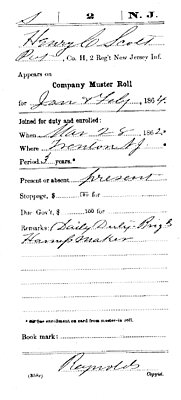 S 2 N. J.
Henry C. Scott
Pvt, Co. H, 2 Reg't New Jersey Inf.
Appears on
Company Muster Roll
for Jan & Feb, 1864.
Joined for duty and enrolled:
When May 28, 186
Where Trenton NJ
Period 3 years.*
Present or absent present
Stoppage, $ 100 for
Due Gov't, $ 100 for
Remarks: Daily Duty. Brig.
Harness Maker
*See enrollment on card from muster-in roll.
Book mark:
Reynolds
(358c) Copyist.